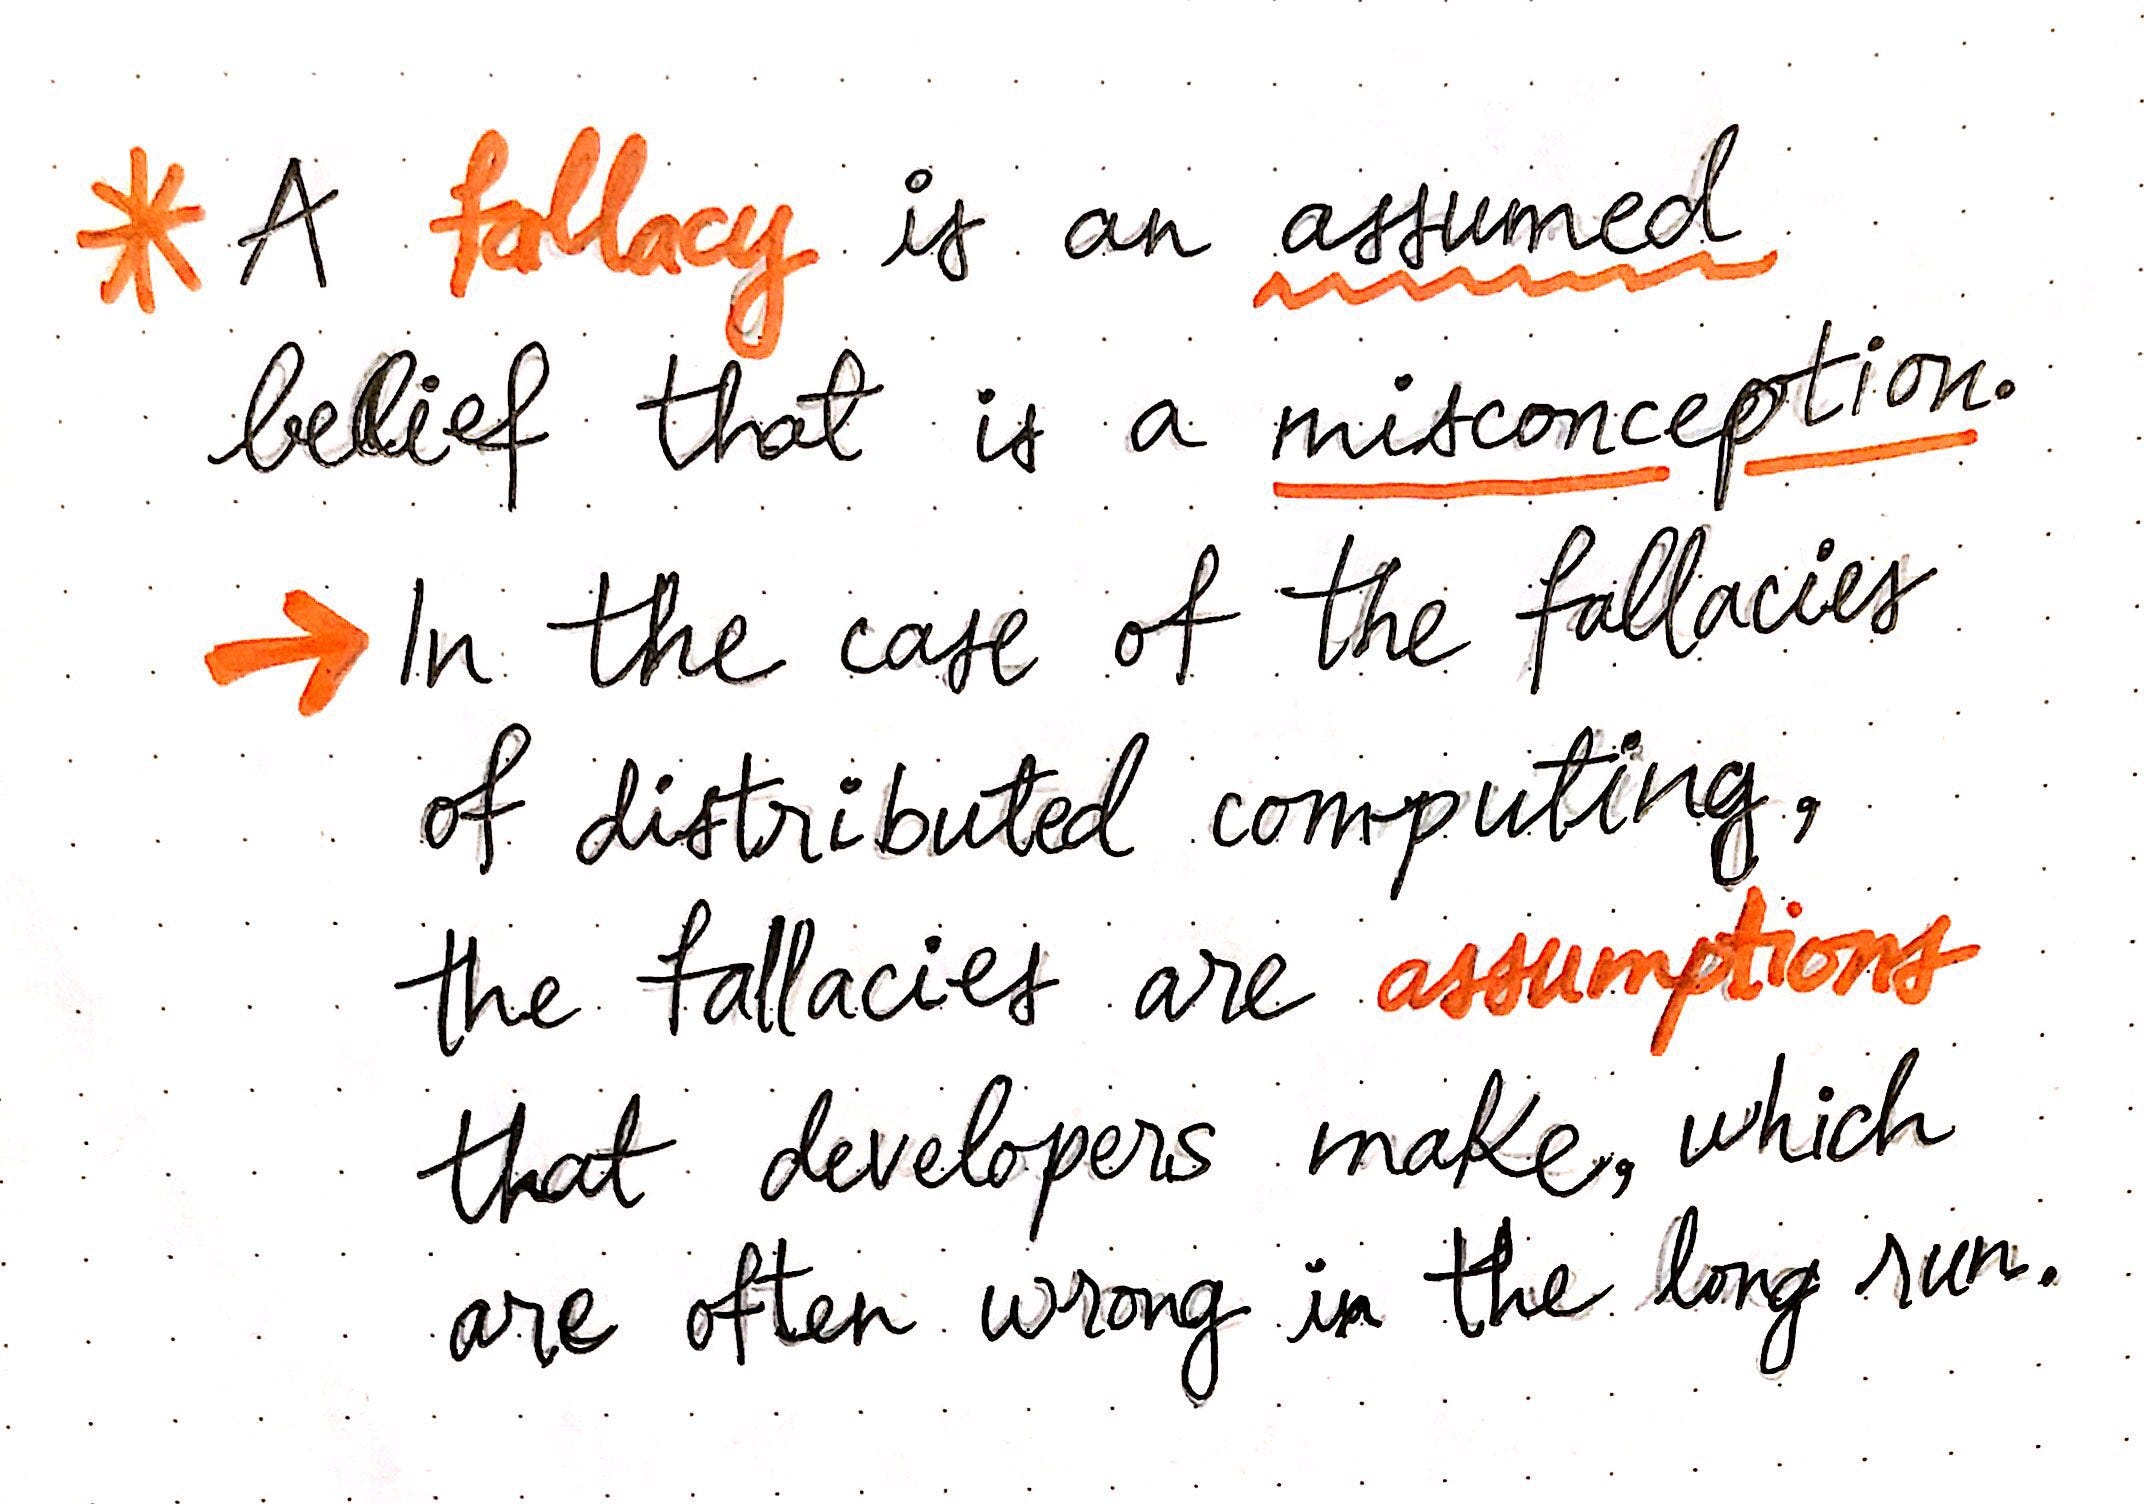 * A fallacy is an assumed
belief that is a misconception.
→ In the case of the fallacies
of distributed computing,
the fallacies are assumptions
that developers make, which
are often wrong in the long run.